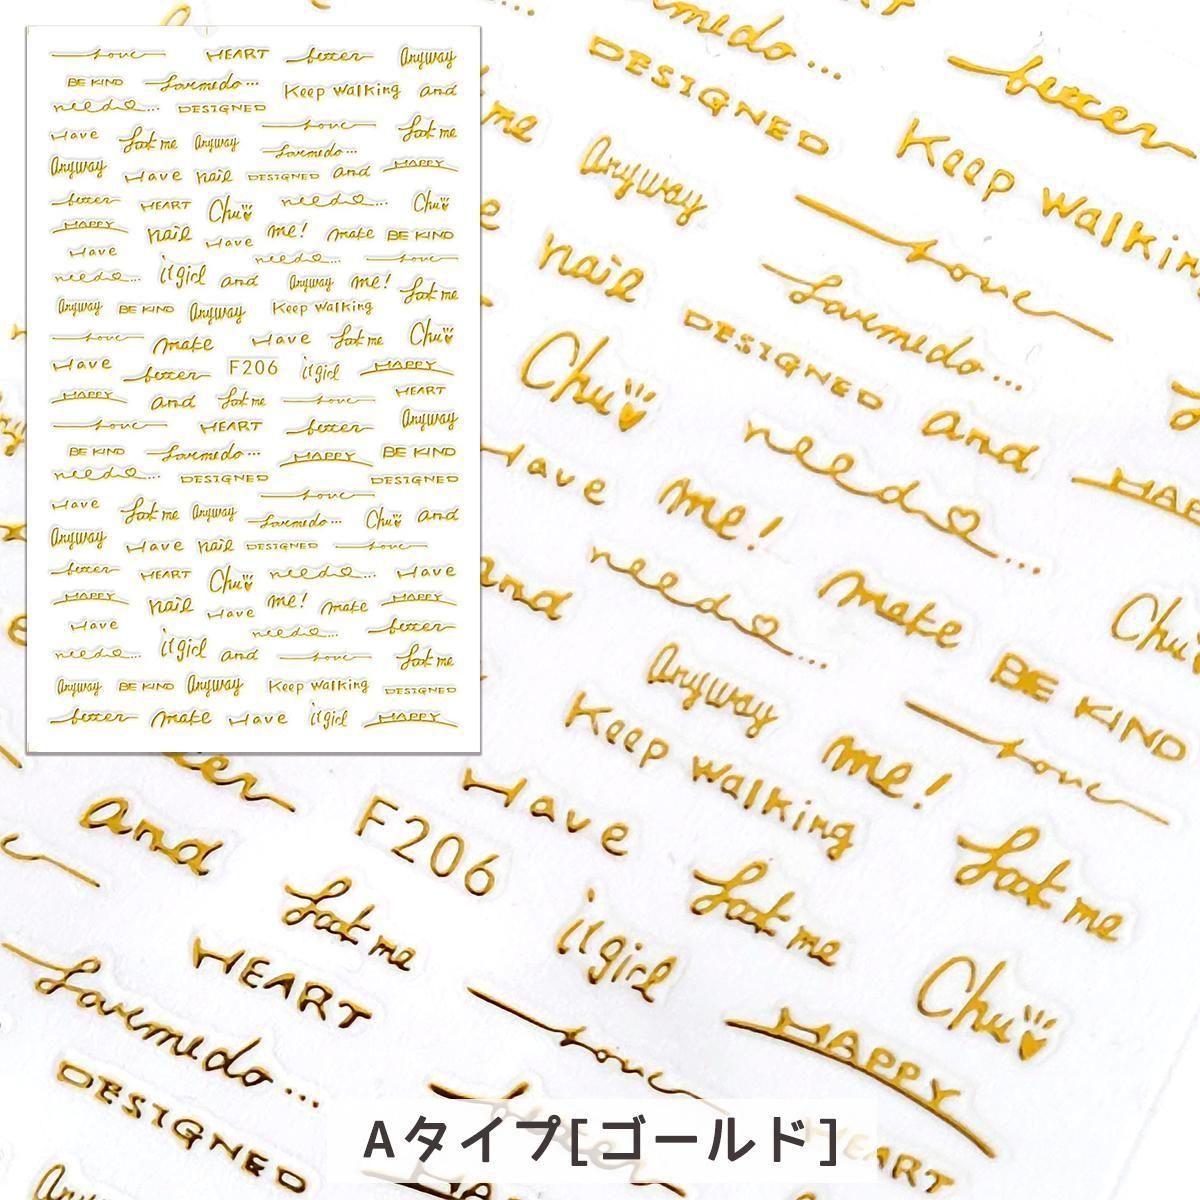 love HEART better Anyway
BE KIND Lovemedo... Keep walking and
need... DESIGNED
Have Look me Anyway love Look me
Lovemedo...
Anyway Have nail DESIGNED and HAPPY
better HEART Chu need... Chu
HAPPY nail Have me! make BE KIND
Have need... love
need... itgirl and Anyway me! Look me
Anyway BE KIND Anyway Keep walking
love make Have Look me Chu
Have better F206 itgirl HAPPY
HAPPY and Look me love HEART
love HEART better Anyway
BE KIND Lovemedo... HAPPY BE KIND
need... DESIGNED DESIGNED
Have Look me Anyway love
Lovemedo... Chu and
Anyway Have nail DESIGNED love
better HEART Chu need... Have
HAPPY nail Have me! make HAPPY
Have need... better
need... itgirl and love Look me
Anyway BE KIND Anyway Keep walking DESIGNED
better make Have itgirl HAPPY
DESIGNED
better
Anyway
Keep walking
love
nail
Lovemedo...
DESIGNED
Chu
and
need...
Have
me!
need...
make
and
Chu
Anyway
BE KIND
Keep walking
me!
love
Have
Look me
and
F206
Look me
itgirl
Look me
Chu
HEART
love
HAPPY
Lovemedo...
better
DESIGNED
HEART
Aタイプ[ゴールド]